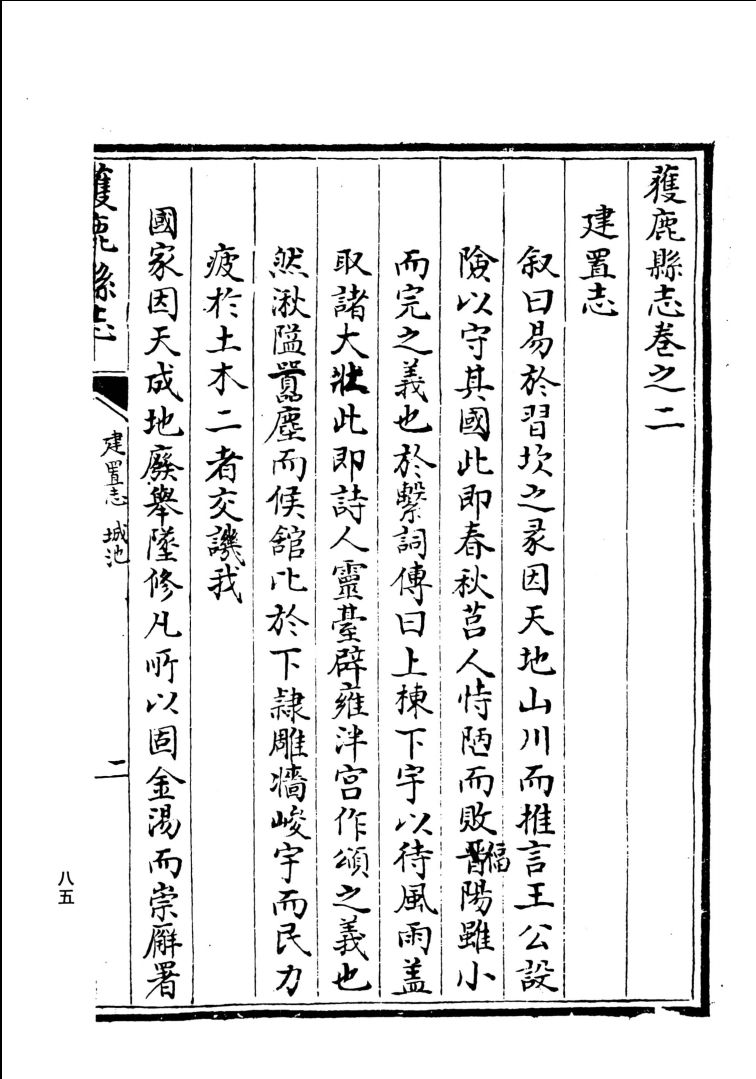 獲鹿縣志卷之二
建置志
叙曰易於習坎之彖因天地山川而推言王公設
險以守其國此即春秋莒人恃陋而敗晋陽雖小
偪
而完之義也於繫詞傳曰上棟下宇以待風雨盖
取諸大壯此即詩人靈䑓辟雍泮宮作頌之義也
然湫隘嚚塵而候舘比於下隷雕墻峻宇而民力
疲於土木二者交譏我
國家因天成地廢舉墜修凡所以固金湯而崇廨署
獲鹿縣志
建置志 城池
二
八五